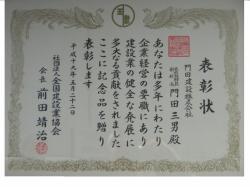 表彰状
門田建設株式会社
門田三男殿
あなたは多年にわたり
企業経営の要職にあり
建設業の健全な発展に
多大なる貢献をされました
ここに記念品を贈り
表彰します
平成十九年五月二十二日
社団法人全国建設業協会
会長 前田靖治